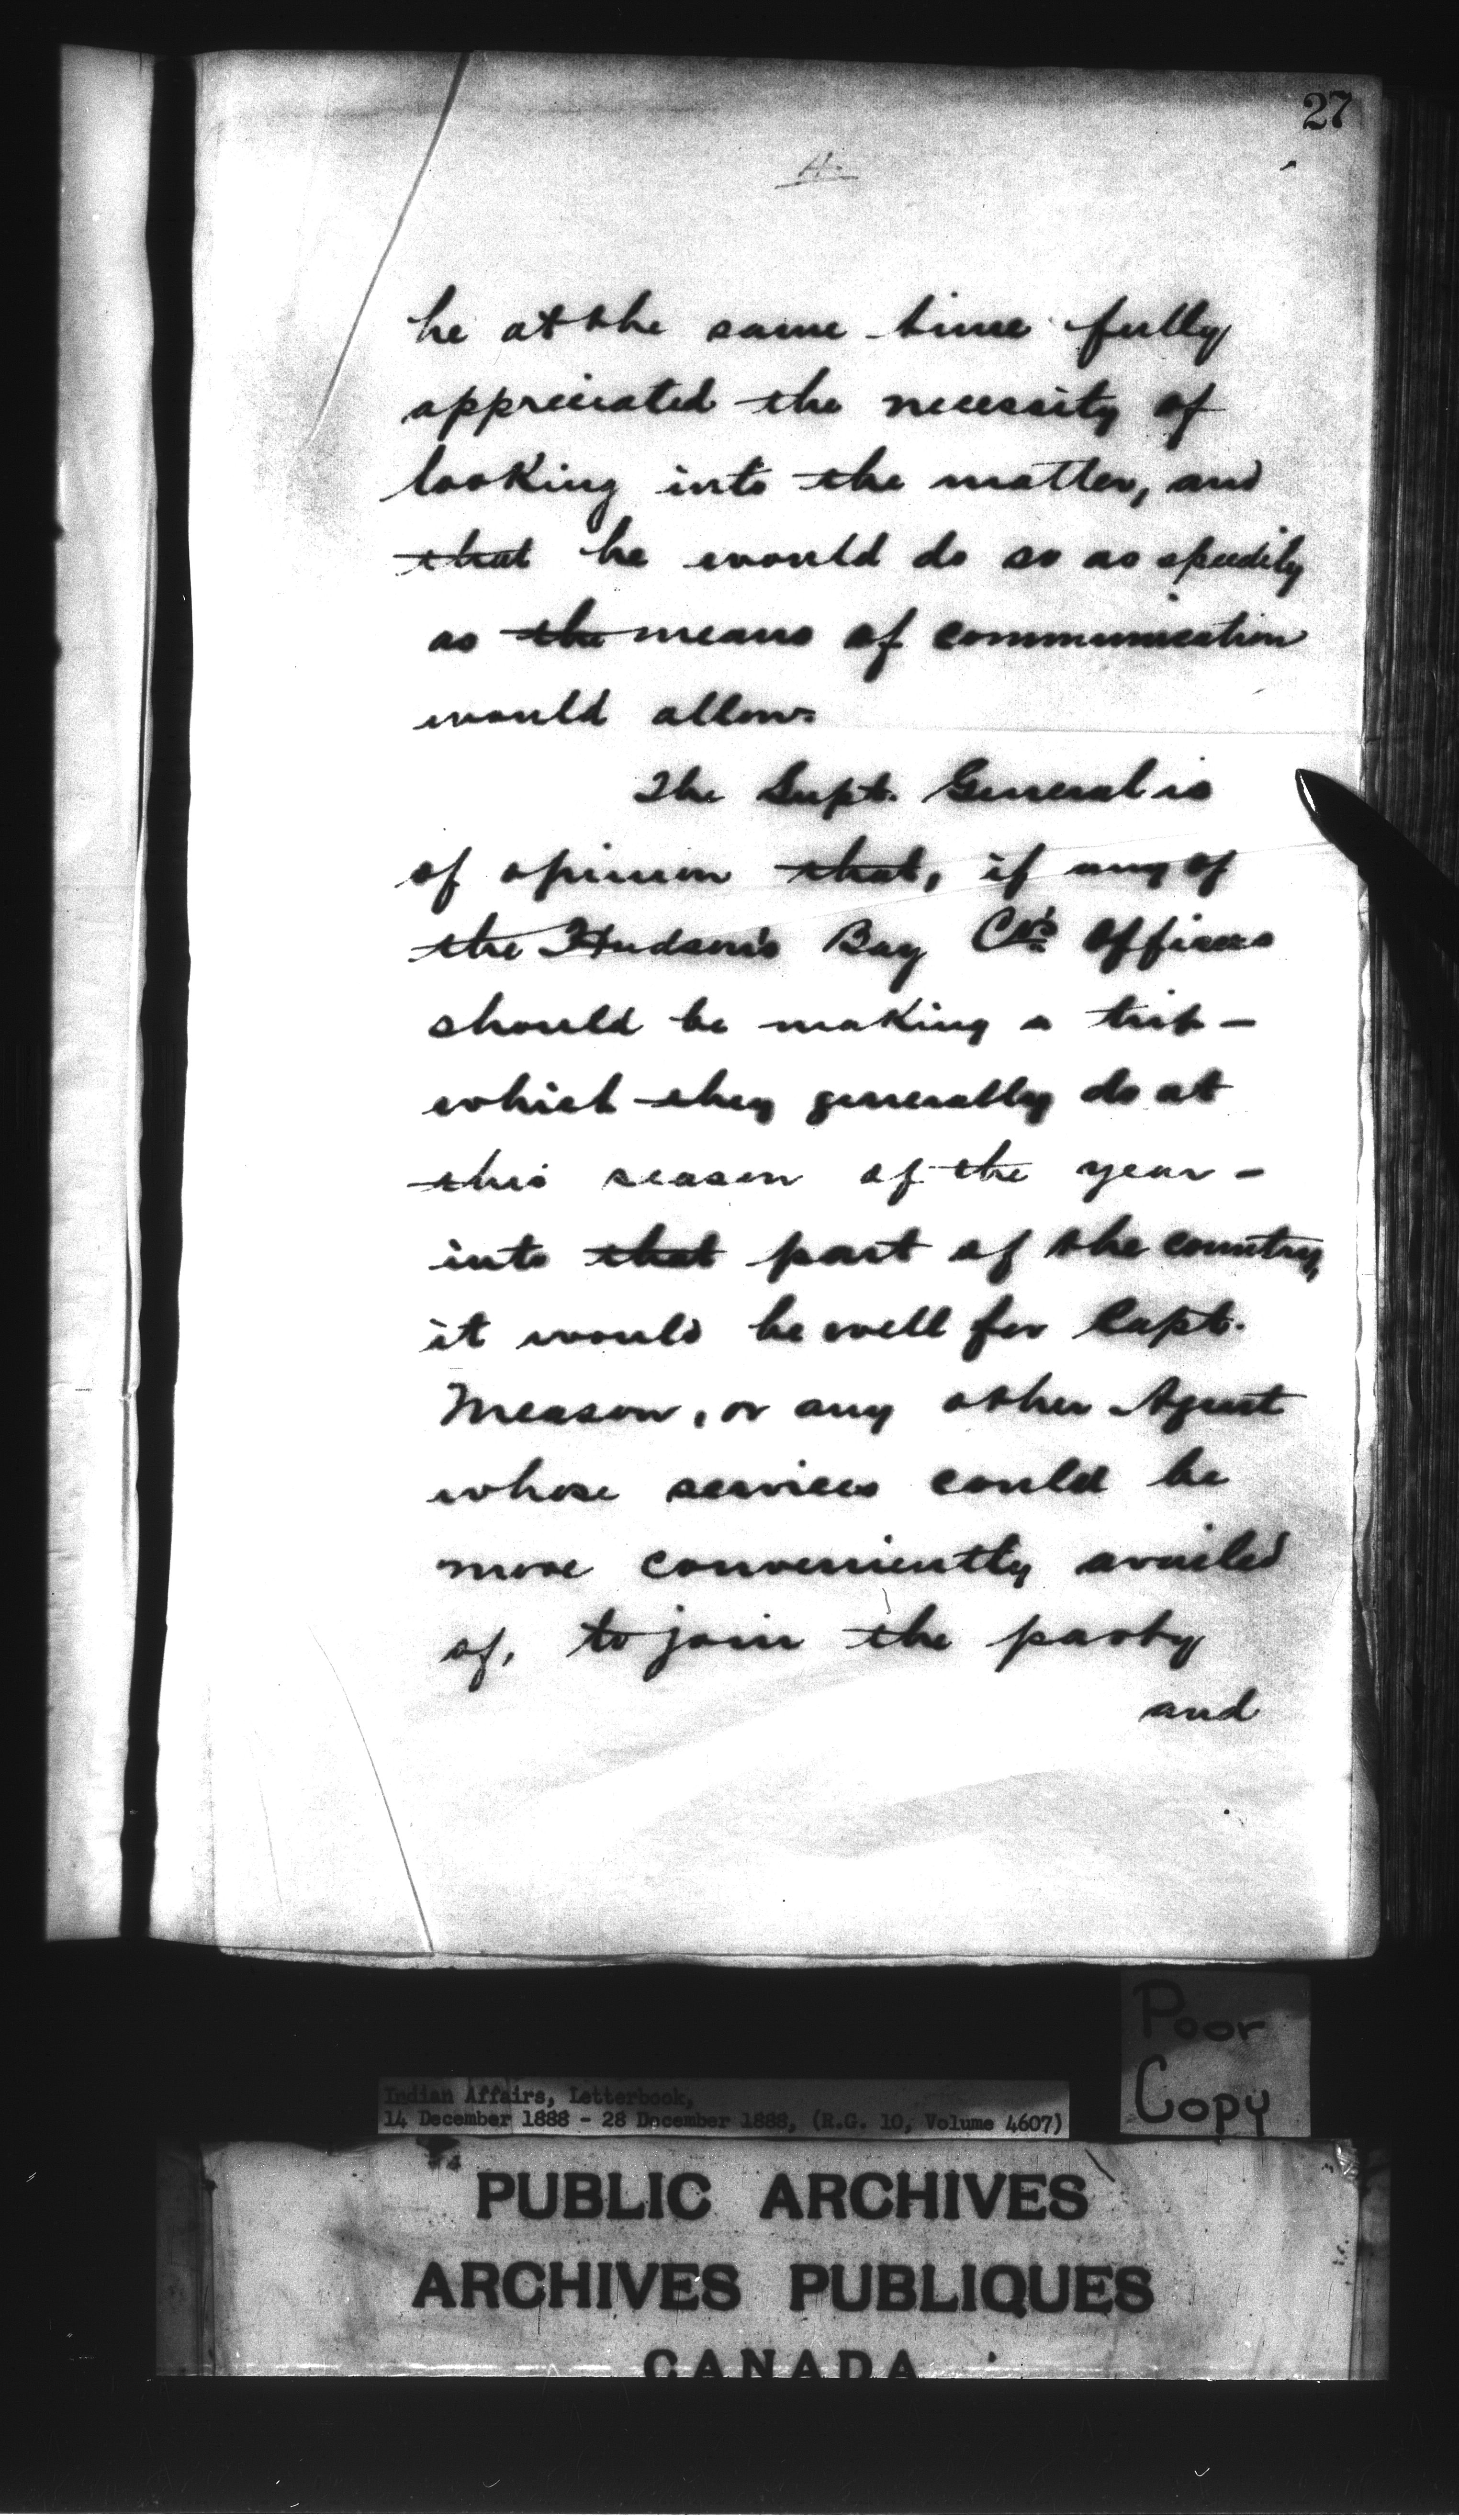 27
4.
he at the same time fully
appreciated the necessity of
looking into the matter, and
that he would do so as speedily
as the means of communication
would allow.
The Supt. General is
of opinion that, if any of
the Hudson's Bay Co's Officers
should be making a trip -
which they generally do at
this season of the year -
into that part of the country,
it would be well for Capt.
Meason, or any other Agent
whose services could be
more conveniently availed
of, to join the party
and
Poor
Copy
Indian Affairs, Letterbook,
14 December 1888 - 28 December 1888, (R.G. 10, Volume 4607)
PUBLIC ARCHIVES
ARCHIVES PUBLIQUES
CANADA